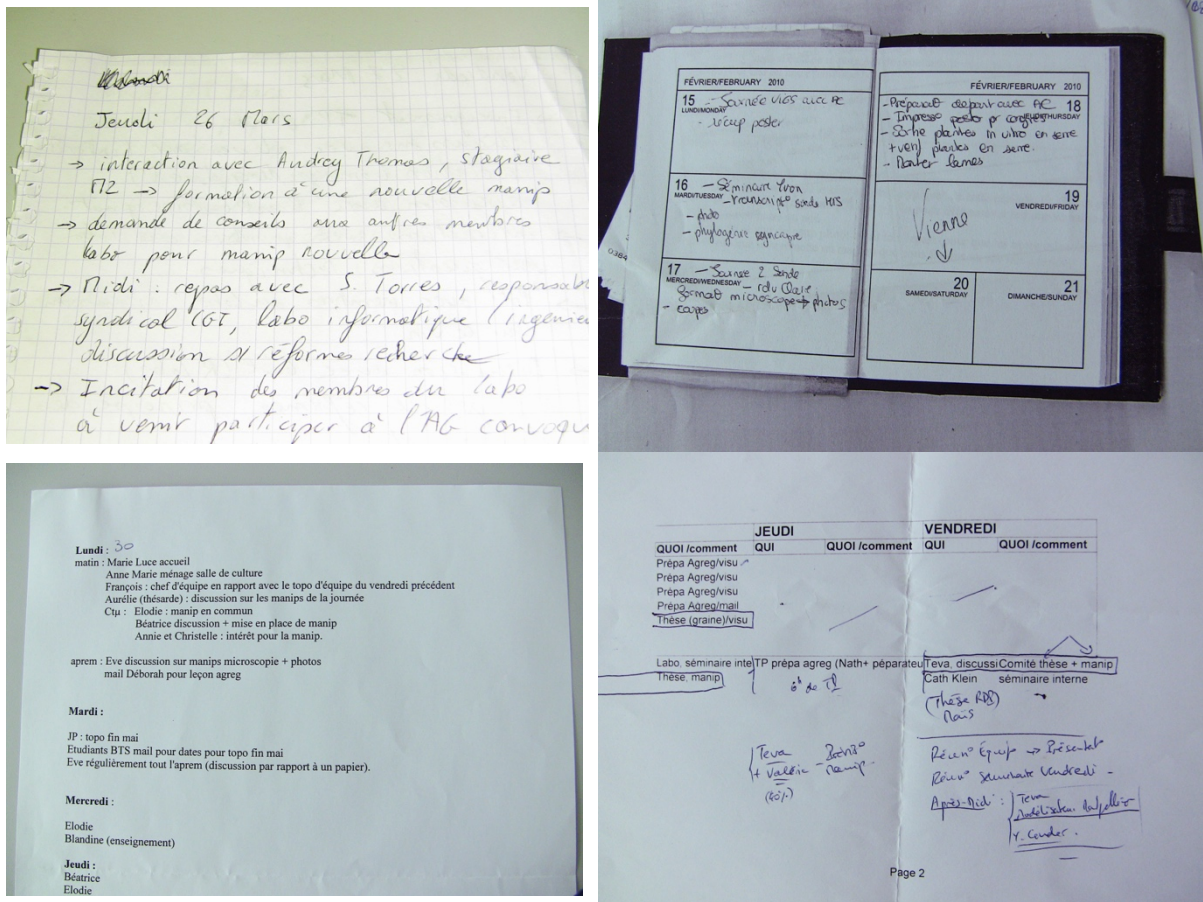 Jeudi 26 Mars
→ interaction avec Audrey Thomas, stagiaire
M2 → formation à une nouvelle manip
→ demande de conseils aux autres membres
labo pour manip nouvelle
→ Midi : repas avec S. Torres, responsabl
syndical CGT, labo informatique (ingénieu
discussion sr réformes recherche
→ Incitation des membres du labo
à venir participer à l'AG convoqu
FÉVRIER/FEBRUARY 2010
15 - Journée VIGS avec AC
LUNDI/MONDAY
- récup poster
16 - Séminaire Yvon
MARDI/TUESDAY - transcript° sonde HIS
- photo
- phylogénie
17 - Journée 2 Sonde
MERCREDI/WEDNESDAY - rdv Claire
format microscope → photos
- coupes
FÉVRIER/FEBRUARY 2010
- Préparat° départ avec AC 18
- Impress° poster pr congrès JEUDI/THURSDAY
- Sortie plantes in vitro en serre
+ verif plantes en serre.
- Monter lames
19
VENDREDI/FRIDAY
Vienne
↓
20
SAMEDI/SATURDAY
21
DIMANCHE/SUNDAY
0384
Lundi : 30
matin : Marie Luce accueil
Anne Marie ménage salle de culture
François : chef d'équipe en rapport avec le topo d'équipe du vendredi précédent
Aurélie (thésarde) : discussion sur les manips de la journée
Ctμ : Elodie : manip en commun
Béatrice discussion + mise en place de manip
Annie et Christelle : intérêt pour la manip.
aprem : Eve discussion sur manips microscopie + photos
mail Déborah pour leçon agreg
Mardi :
JP : topo fin mai
Etudiants BTS mail pour dates pour topo fin mai
Eve régulièrement tout l'aprem (discussion par rapport à un papier).
Mercredi :
Elodie
Blandine (enseignement)
Jeudi :
Béatrice
Elodie
JEUDI VENDREDI
QUOI /comment QUI QUOI /comment QUI QUOI /comment
Prépa Agreg/visu
Prépa Agreg/visu
Prépa Agreg/visu
Prépa Agreg/mail
Thèse (graine)/visu
Labo, séminaire inte TP prépa agreg (Nath+ péparateu Teva, discussi Comité thèse + manip
Thèse, manip Cath Klein séminaire interne
6h de TP
(Thèse RDB)
Maïs
Teva
+ Valérie
manip
(40%)
Réun° Équipe → Présentat°
Réun° séminaire vendredi -
Après-Midi : Teva
Modélisation Montpellier
Y.
Page 2